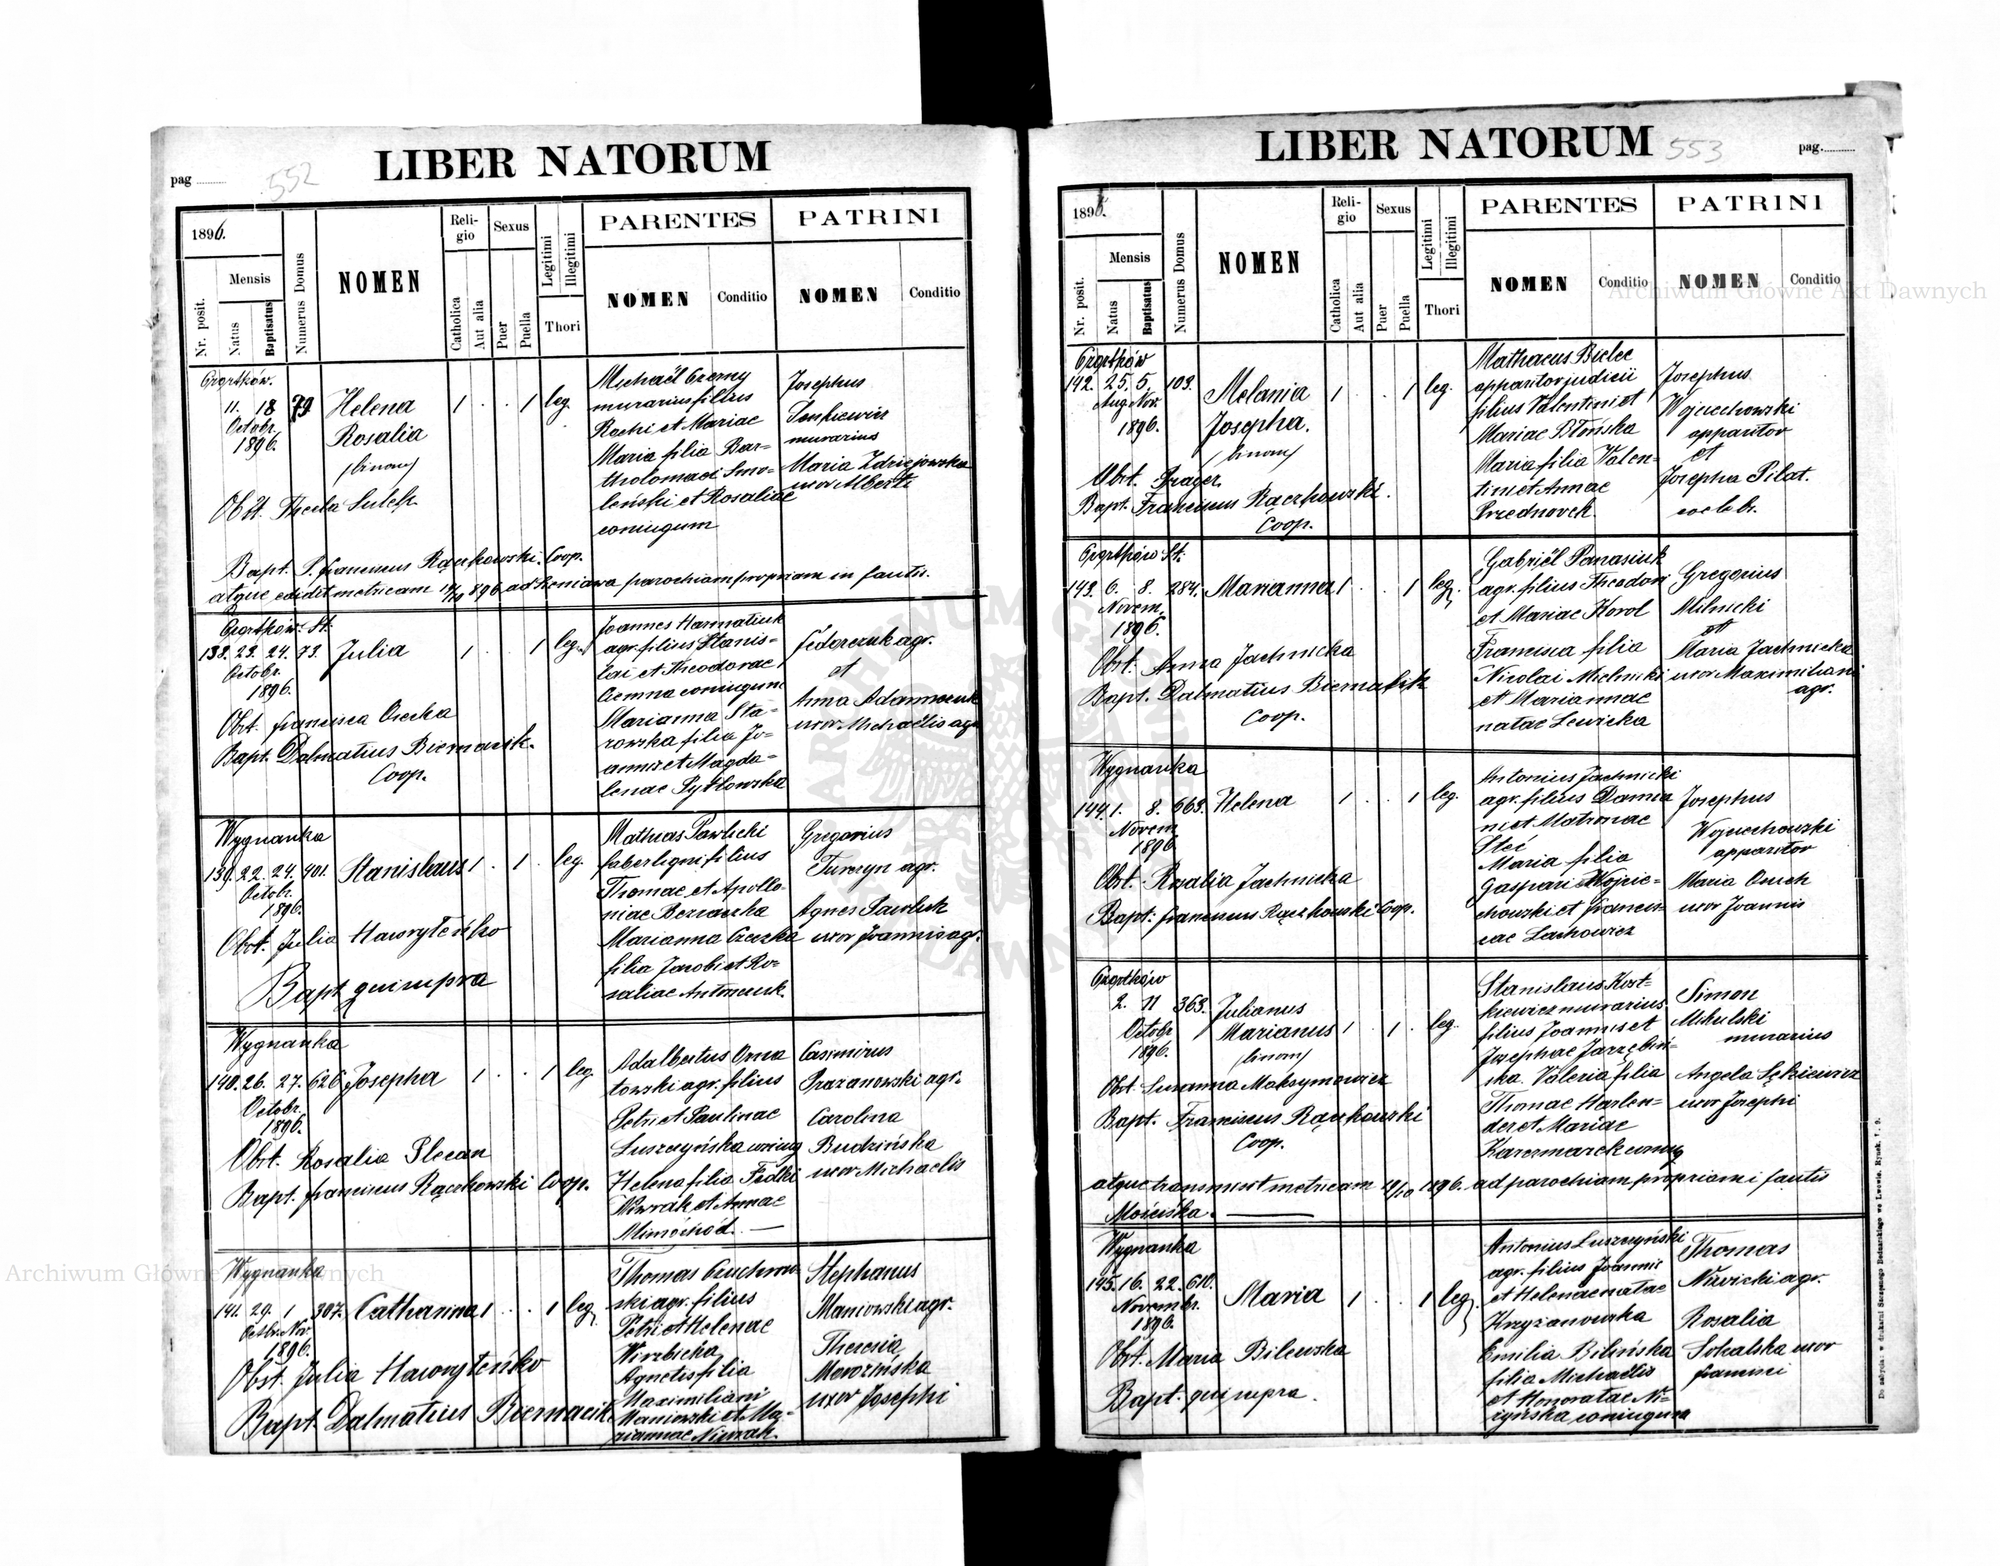 LIBER NATORUM
pag 552
1896.
Nr. posit.
Mensis
Natus
Baptisatus
Numerus Domus
NOMEN
Religio
Catholica
Aut alia
Sexus
Puer
Puella
Legitimi
Illegitimi
Thori
PARENTES
NOMEN
Conditio
PATRINI
NOMEN
Conditio
11. 18 79 Helena 1 . . 1 leg.
Octobr. Rosalia
1896. /binom/
Michaël Czerny
murarius filius
Rochi et Mariae
Maria filia Bar-
tholomaei Smo-
leński et Rosaliae
coniugum
Josephus
murarius
Maria Zdziejowska
uxor Alberti
Obst. Thecla
Bapt. P. Franciscus Rączkowski. Coop.
atque edidit metricam 896 ad parochiam propriam in fautis.
138. 23. 24. 73. Julia 1 . . 1 leg.
Octobr.
1896.
Joannes Harmatiuk
agr. filius Stanis-
lai et Theodorae
coniugum
Marianna Sta-
rowska filia Jo-
annis et Magda-
lenae Pytlowska
Fedorczuk agr.
et
Anna
uxor Michaëlis agr.
Obst. Francisca Osecka
Bapt. Dalmatius Biernacik.
Coop.
Wygnanka
139. 22. 24. 401. Stanislaus 1 . 1 . leg.
Octobr.
1896.
Mathias Pawlicki
faber ligni filius
Thomae et Apollo-
niae
Marianna Czeczka
filia Jacobi et Ro-
saliae Antoniuk.
Gregorius
Turczyn agr.
Agnes Pawluk
uxor Joannis agr.
Obst. Julia Hawryłeńko
Bapt. qui supra
Wygnanka
140. 26. 27. 626 Josepha 1 . . 1 leg
Octobr.
1896.
Adalbertus Orna
towski agr. filius
Petri et Paulinae
Luszczyńska coniug
Helena filia Fedki
et Annae
Casimirus
Prazanowski agr.
Carolina
Budzińska
uxor Michaëlis
Obst. Rosalia Plecan
Bapt. Franciscus Rączkowski Coop.
Wygnanka
141. 29. 1 307. Catharina 1 . . 1 leg
Octbr. Nov.
1896.
Thomas Czuchrow-
ski agr. filius
Petri et Helenae
Wirzbicka
Agnetis filia
Maximiliani
Maniowski et Ma-
riannae
Stephanus
Maniowski agr.
Theresia
uxor Josephi
Obst. Julia Hawryłeńko
Bapt. Dalmatius Biernacik
LIBER NATORUM 553
pag.
1896.
Nr. posit.
Mensis
Natus
Baptisatus
Numerus Domus
NOMEN
Religio
Catholica
Aut alia
Sexus
Puer
Puella
Legitimi
Illegitimi
Thori
PARENTES
NOMEN
Conditio
PATRINI
NOMEN
Conditio
142. 25. 5. 103. Melania 1 . . 1 leg.
Aug. Nov. Josepha.
1896. /binom/
Mathaeus Bielec
apparitor judicii
filius Valentini et
Mariae Błońska
Maria filia Valen-
tini et Annae
Josephus
Wojciechowski
apparitor
et
Josepha Pilat.
coeleb.
Obst. Prager
Bapt. Franciscus Rączkowski.
Coop.
143. 6. 8. 284. Marianna 1 . . 1 leg.
Novem.
1896.
Gabriël Panasiuk
agr. filius Theodori
et Mariae Korol
Francisca filia
Nicolai Melnicki
et Mariannae
natae Lewicka
Gregorius
Milnicki
et
Maria Jachnicka
uxor Maximiliani
agr.
Obst. Anna Jachnicka
Bapt. Dalmatius Biernacik
Coop.
Wygnanka
144. 1. 8. 663. Helena 1 . . 1 leg.
Novem
1896
Antonius Jachnicki
agr. filius Damia
ni et Matronae
Maria filia
Gaspari Wojcie-
chowski et Francis-
cae Lachowicz
Josephus
Wojciechowski
apparitor
Maria
uxor Joannis
Obst. Rosalia Jachnicka
Bapt: Franciscus Rączkowski Coop.
2. 11 363. Julianus
Octobr Marianus 1 . 1 . leg.
1896. /binom/
Stanislaus Kost-
kiewicz murarius
filius Joannis et
Josephae Jarzębiń-
ska. Valeria filia
Thomae Harlen-
der et Mariae
Simon
Mikulski
murarius
Angela
uxor Josephi
Obst. Susanna Maksymowicz
Bapt. Franciscus Rączkowski
Coop.
atque transmisit metricam 18/10 1896. ad parochiam propriam i fautis
Mościska.
Wygnanka
145. 16. 22. 610. Maria 1 . . 1 leg.
Novembr.
1896.
Antonius Luszczyński
agr. filius Joannis
et Helenae natae
Krzyżanowska
Emilia Bilińska
filia Michaëlis
et Honoratae Ni-
żyńska coniugum
Thomas
Nawicki agr.
Rosalia
Sokalska uxor
Obst. Maria Bilewska
Bapt. qui supra.
Archiwum Główne Akt Dawnych